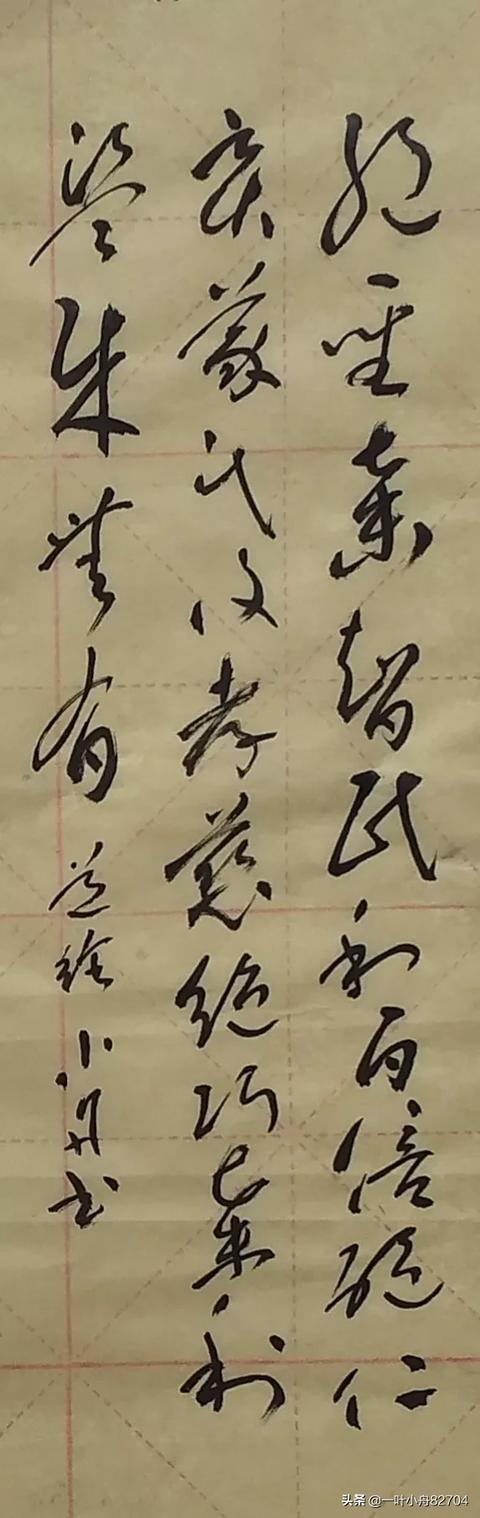 绝圣弃智民利百倍绝仁
弃义民复孝慈绝巧弃利
盗贼无有道经小舟书
头条@一叶小舟82704